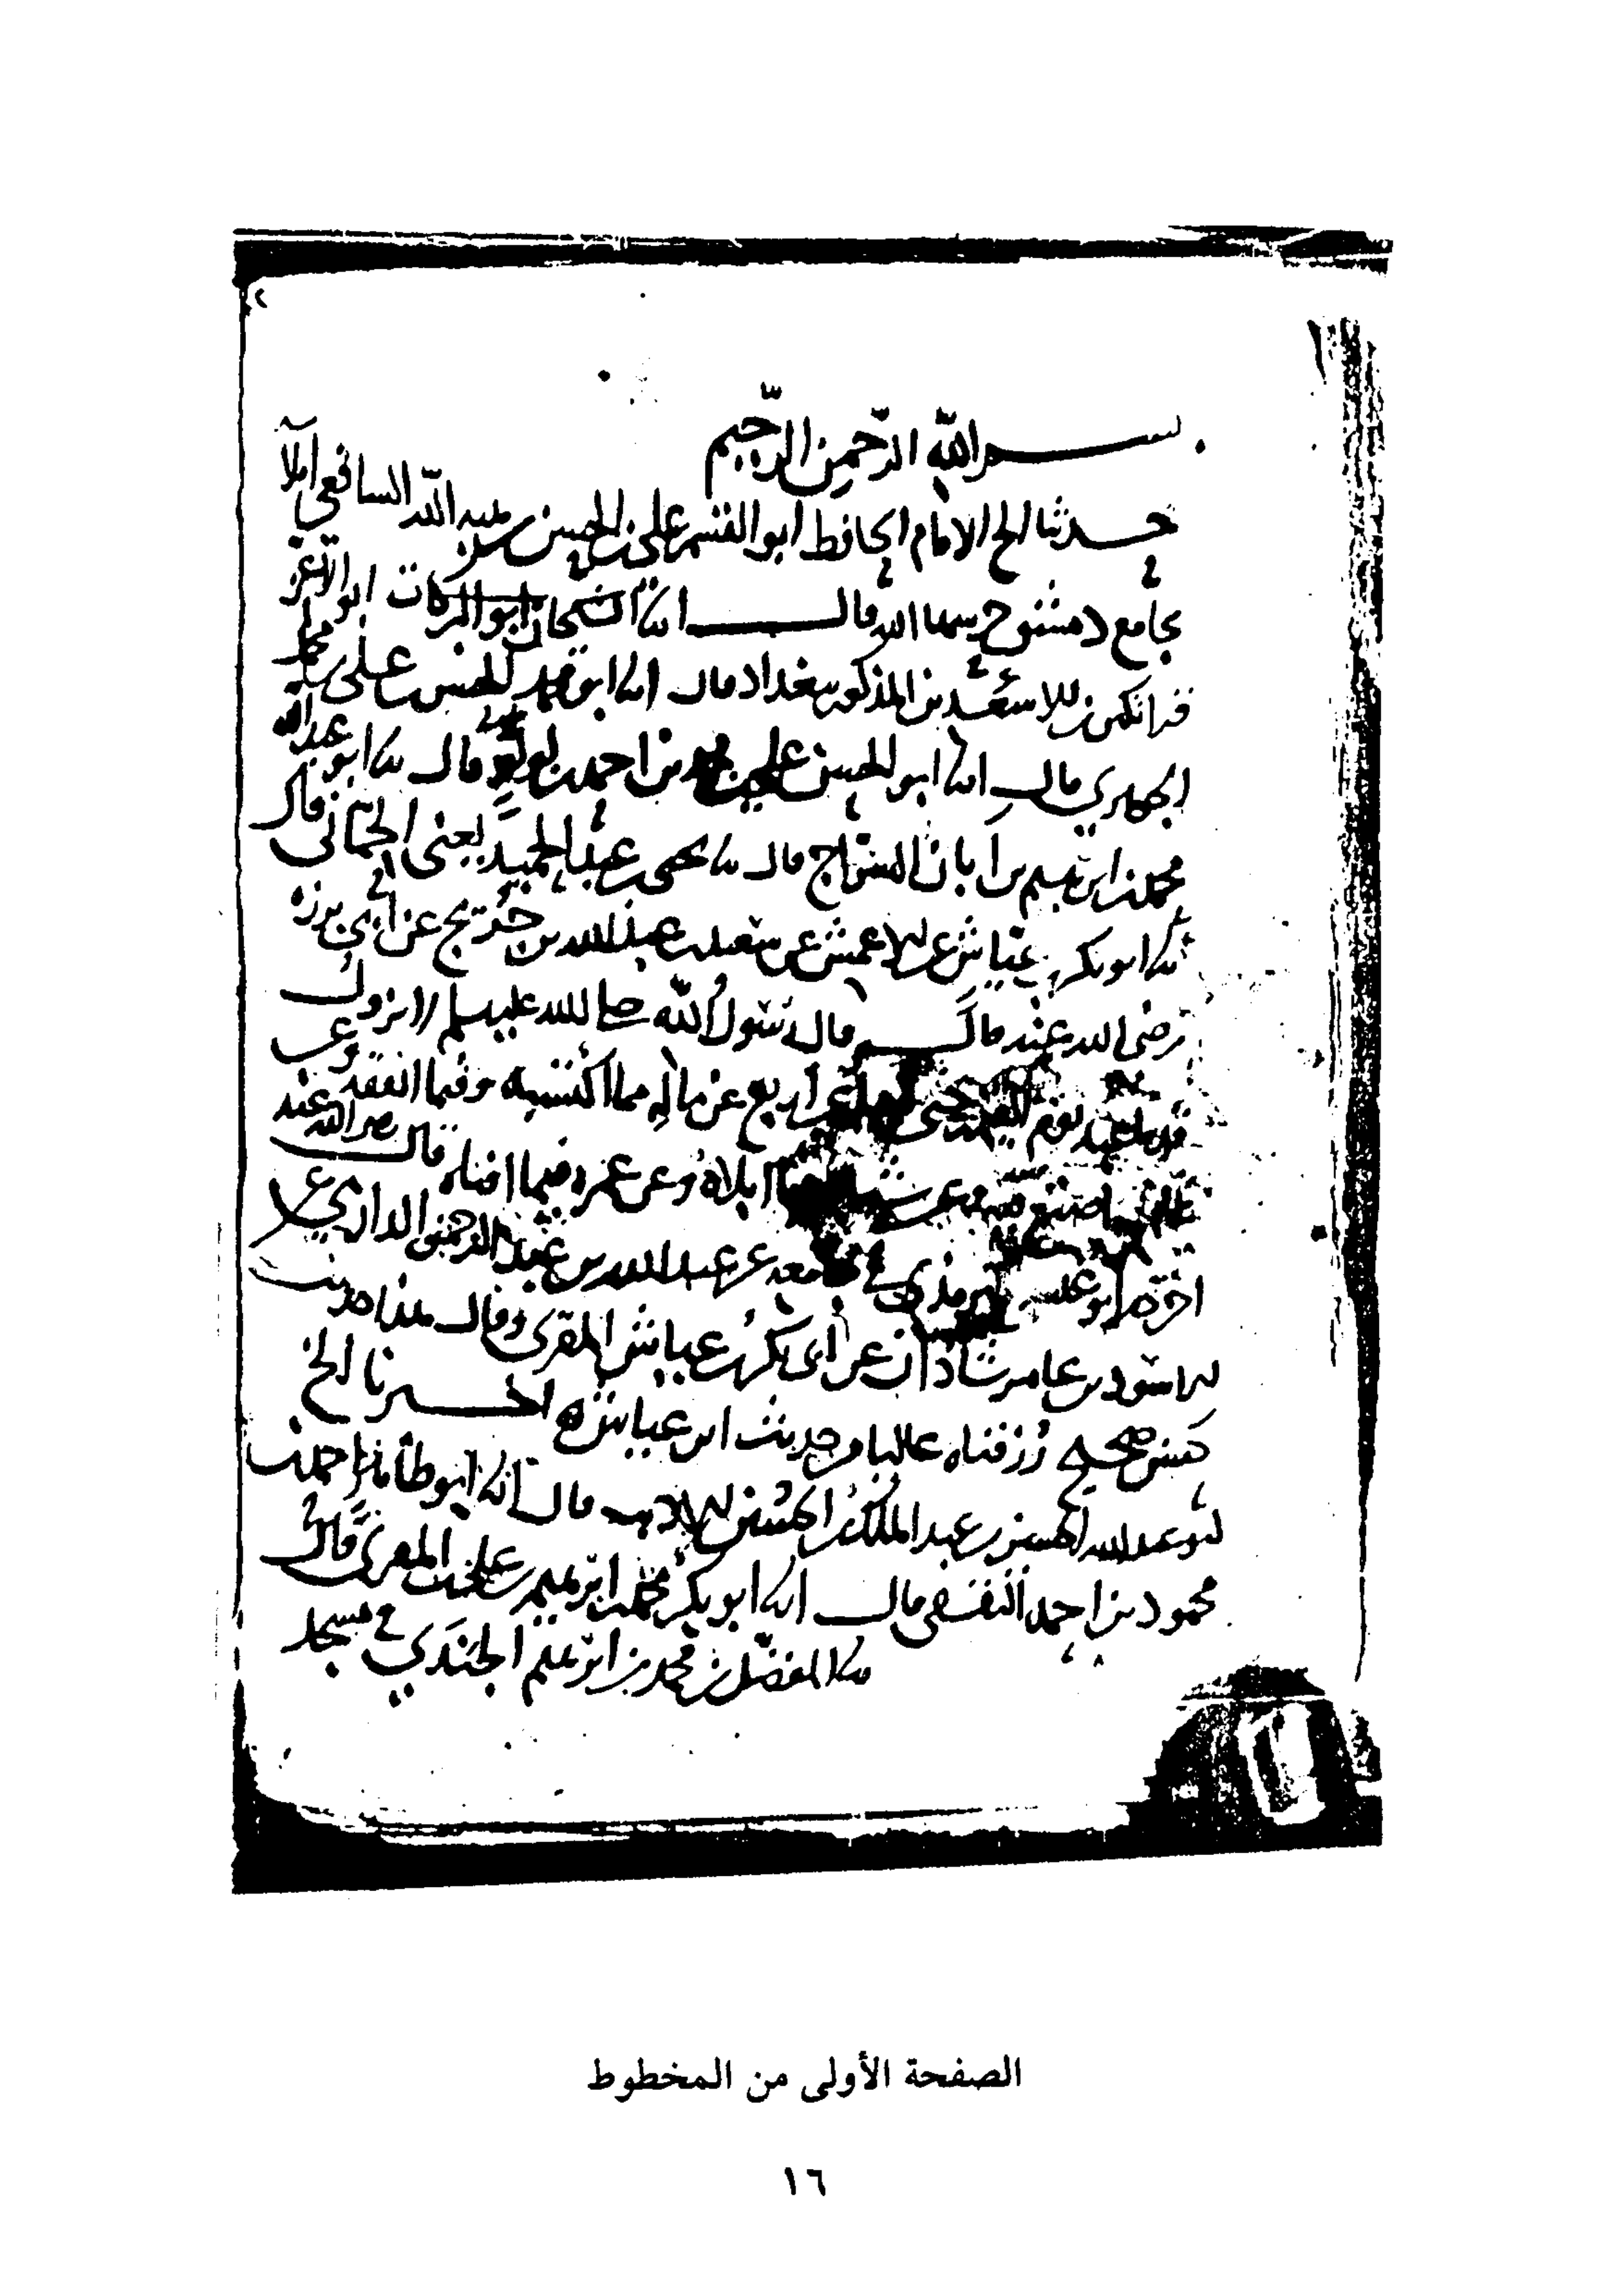 بسم الله الرحمن الرحيم
حدثنا الشيخ الامام الحافظ ابو القسم علي بن الحسن بن هبة الله الشافعي املاً
بجامع دمشق حرسها الله قال انا الشيخان ابو البركات ابو الاعز
قراتكين بن الاسعد بن المذكور ببغداد قال انا ابو محمد الحسن بن علي بن محمد
الجوهري قال انا ابو الحسن علي بن محمد بن احمد بن لولو قال نا ابو عبد الله
محمد بن ابرهيم بن ابان السراج قال نا يحيى بن عبد الحميد يعني الحماني قال
نا ابو بكر بن عياش عن الاعمش عن سعيد بن عبد الله بن جريج عن ابي برزة
رضي الله عنه قال قال رسول الله صلى الله عليه وسلم لا تزول
قدما عبد يوم القيمة حتى يسل عن اربع عن ماله مما اكتسبه وفيما انفقه وعن
ما صنع فيه وعن جسده فيما ابلاه وعن عمره فيما افناه قال رضي الله عنه
اخرجه ابو عيسى الترمذي في جامعه عن عبد الله بن عبد الرحمن الدارمي عن
الاسود بن عامر شاذان عن ابي بكر بن عياش المقرئ وقال هذا حديث
حسن صحيح رزقناه عاليا من حديث ابن عياش اخبرنا الشيخ
ابو عبد الله الحسين بن عبد الملك بن الحسين الاديب قال انا ابو طاهر احمد بن
محمود بن احمد الثقفي قال انا ابو بكر محمد بن ابرهيم بن علي بن المقرئ قال
نا المفضل بن محمد بن ابرهيم الجندي في مسجد
الصفحة الأولى من المخطوط
١٦